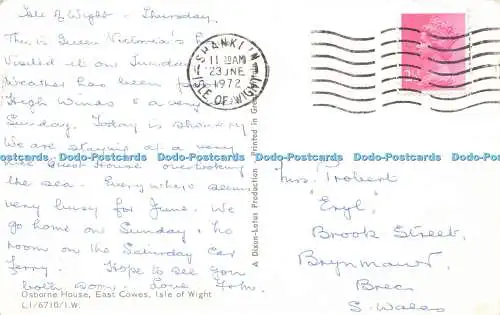 Isle of Wight - Thursday
This is Queen Victoria's
Visited it on Sunday
Weather has been
High Winds & a very
Sunday. Today is showery
We are staying at a very
nice Guest House overlooking
the sea. Everywhere seems
very busy for June. We
go home on Sunday, no
room on the Saturday Car
Ferry. Hope to see you
both soon. Love
Osborne House, East Cowes, Isle of Wight
L1/6710/I.W.
A Dixon-Lotus Production
Printed in
SHANKLIN
11 30AM
23 JNE
1972
ISLE OF WIGHT
Mrs. Trobert
"Eryl",
Brook Street,
Brynmawr,
Brec
S. Wales
Dodo-Postcards Dodo-Postcards Dodo-Postcards Dodo-Postcards Dodo-Postcards